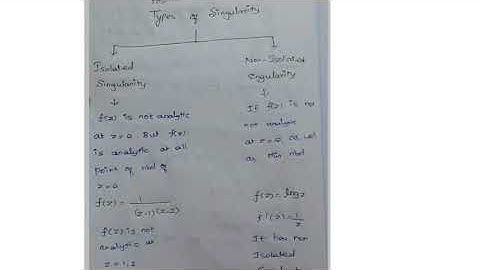 Types of Singularity
Isolated
Singularity
f(z) is not analytic
at z=a But f(z)
is analytic at all
point of nbd of
z=a
f(z) = 1/(z-1)(z-2)
f(z) is not
analytic at
z = 1,2
Non-Isolated
Singularity
If f(z) is no
not analytic
at z=a as well
as this nbd
f(z) = log z
f'(z) = 1/z
It has non
Isolated